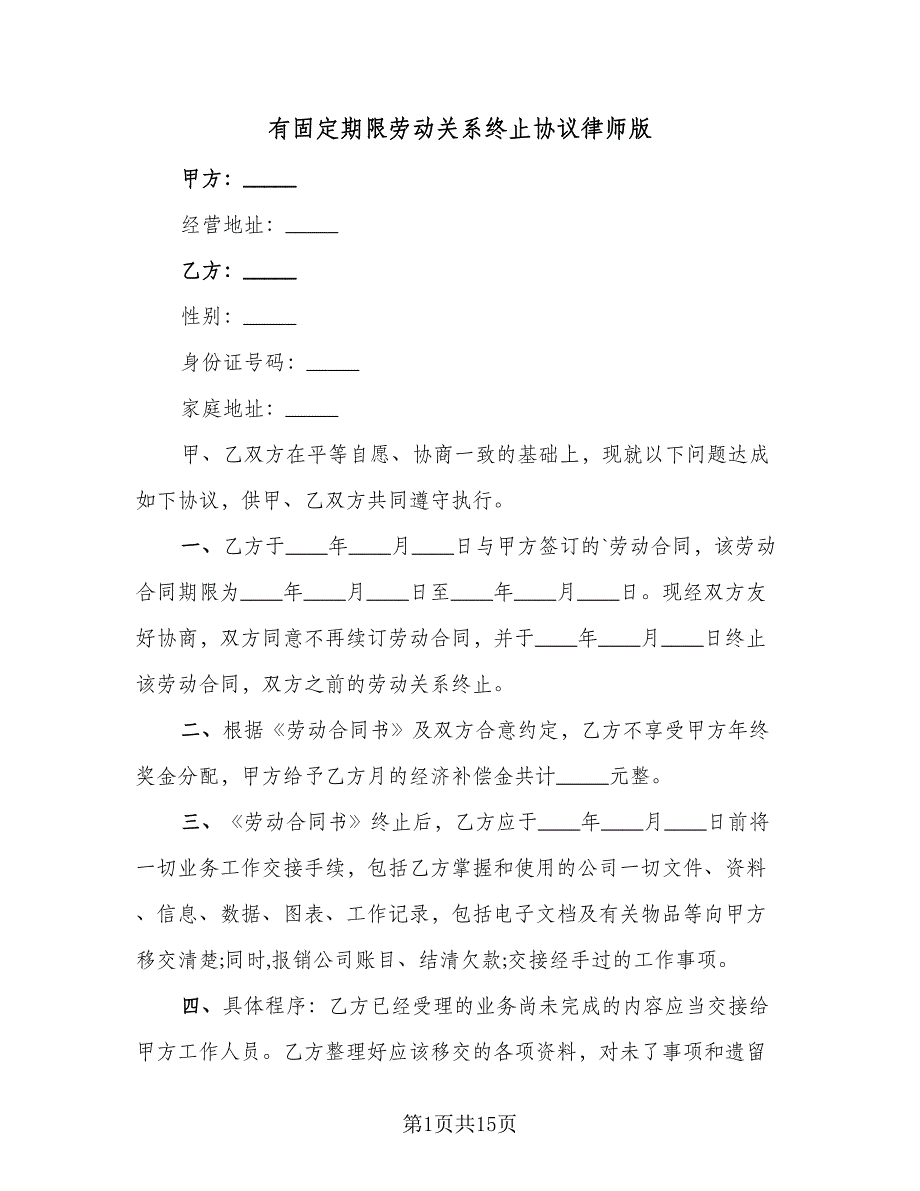 有固定期限劳动关系终止协议律师版
甲方：_____
经营地址：_____
乙方：_____
性别：_____
身份证号码：_____
家庭地址：_____
甲、乙双方在平等自愿、协商一致的基础上，现就以下问题达成
如下协议，供甲、乙双方共同遵守执行。
一、乙方于____年____月____日与甲方签订的`劳动合同，该劳动
合同期限为____年____月____日至____年____月____日。现经双方友
好协商，双方同意不再续订劳动合同，并于____年____月____日终止
该劳动合同，双方之前的劳动关系终止。
二、根据《劳动合同书》及双方合意约定，乙方不享受甲方年终
奖金分配，甲方给予乙方月的经济补偿金共计_____元整。
三、《劳动合同书》终止后，乙方应于____年____月____日前将
一切业务工作交接手续，包括乙方掌握和使用的公司一切文件、资料
、信息、数据、图表、工作记录，包括电子文档及有关物品等向甲方
移交清楚;同时,报销公司账目、结清欠款;交接经手过的工作事项。
四、具体程序：乙方已经受理的业务尚未完成的内容应当交接给
甲方工作人员。乙方整理好应该移交的各项资料，对未了事项和遗留
第1页共15页